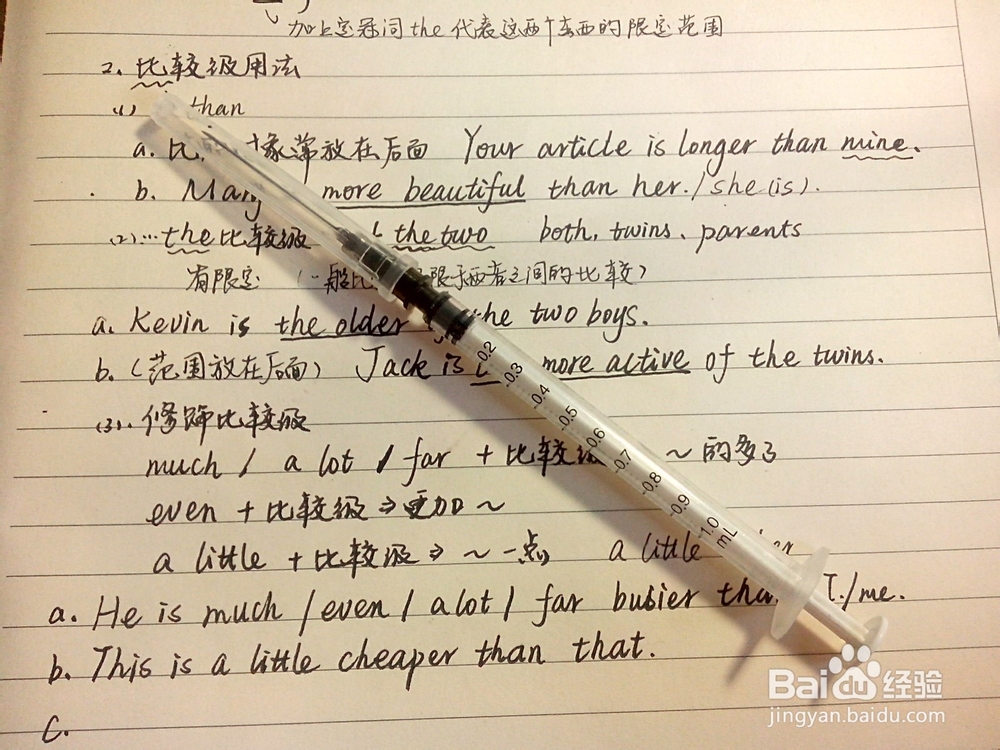 加上定冠词the 代表这两个东西的限定范围
2. 比较级用法
(1) than
a. 比 对象常放在后面 Your article is longer than mine.
b. more beautiful than her./she (is).
(2)...the比较级 the two both, twins, parents
有限定 (一般比 限于两者之间的比较)
a. Kevin is the older the two boys.
b. (范围放在后面) Jack is more active of the twins.
(3). 修饰比较级
much / a lot / far + 比较级 ~的多了
even + 比较级 ⇒ 更加~
a little + 比较级 ⇒ ~一点 a little
a. He is much / even / a lot / far busier I./me.
b. This is a little cheaper than that.
c.
-0.2
-0.3
-0.4
-0.5
-0.6
-0.7
-0.8
-0.9
-1.0
mL
Baidu 经验
jingyan.baidu.com